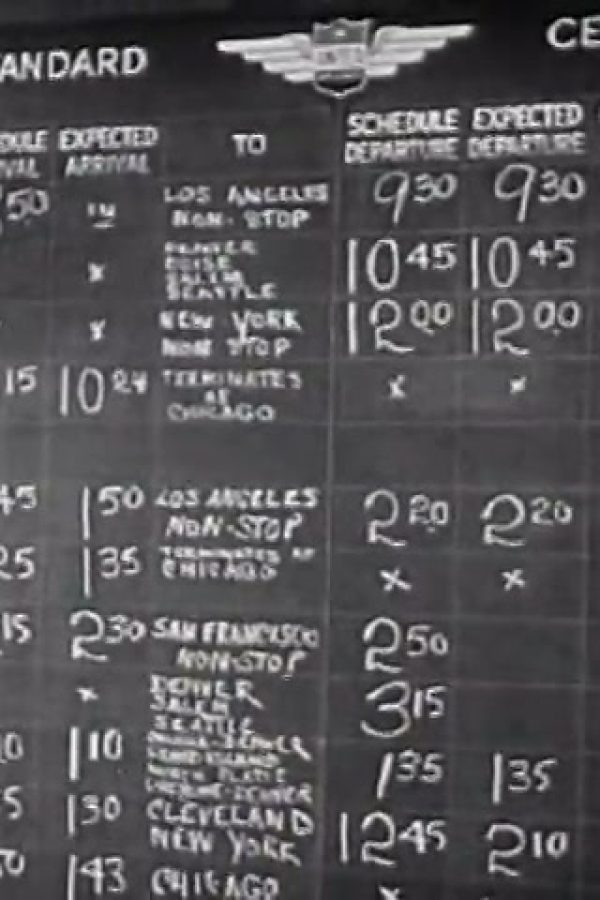 ANDARD CE
DULE EXPECTED TO SCHEDULE EXPECTED
VAL ARRIVAL DEPARTURE DEPARTURE
50 IN LOS ANGELES 9 30 9 30
NON-STOP
DENVER
BOISE
x SALEM 10 45 10 45
SEATTLE
x NEW YORK 12 00 12 00
NON STOP
15 10 24 TERMINATES x x
AT
CHICAGO
45 1 50 LOS ANGELES 2 20 2 20
NON-STOP
25 1 35 TERMINATES AT x x
CHICAGO
15 2 30 SAN FRANCISCO 2 50
NON-STOP
x DENVER 3 15
SALEM
SEATTLE
0 1 10 1 35 1 35
NORTH PLATTE
CHEYENNE-DENVER
5 1 30 CLEVELAND 12 45 2 10
NEW YORK
0 1 43 CHICAGO x